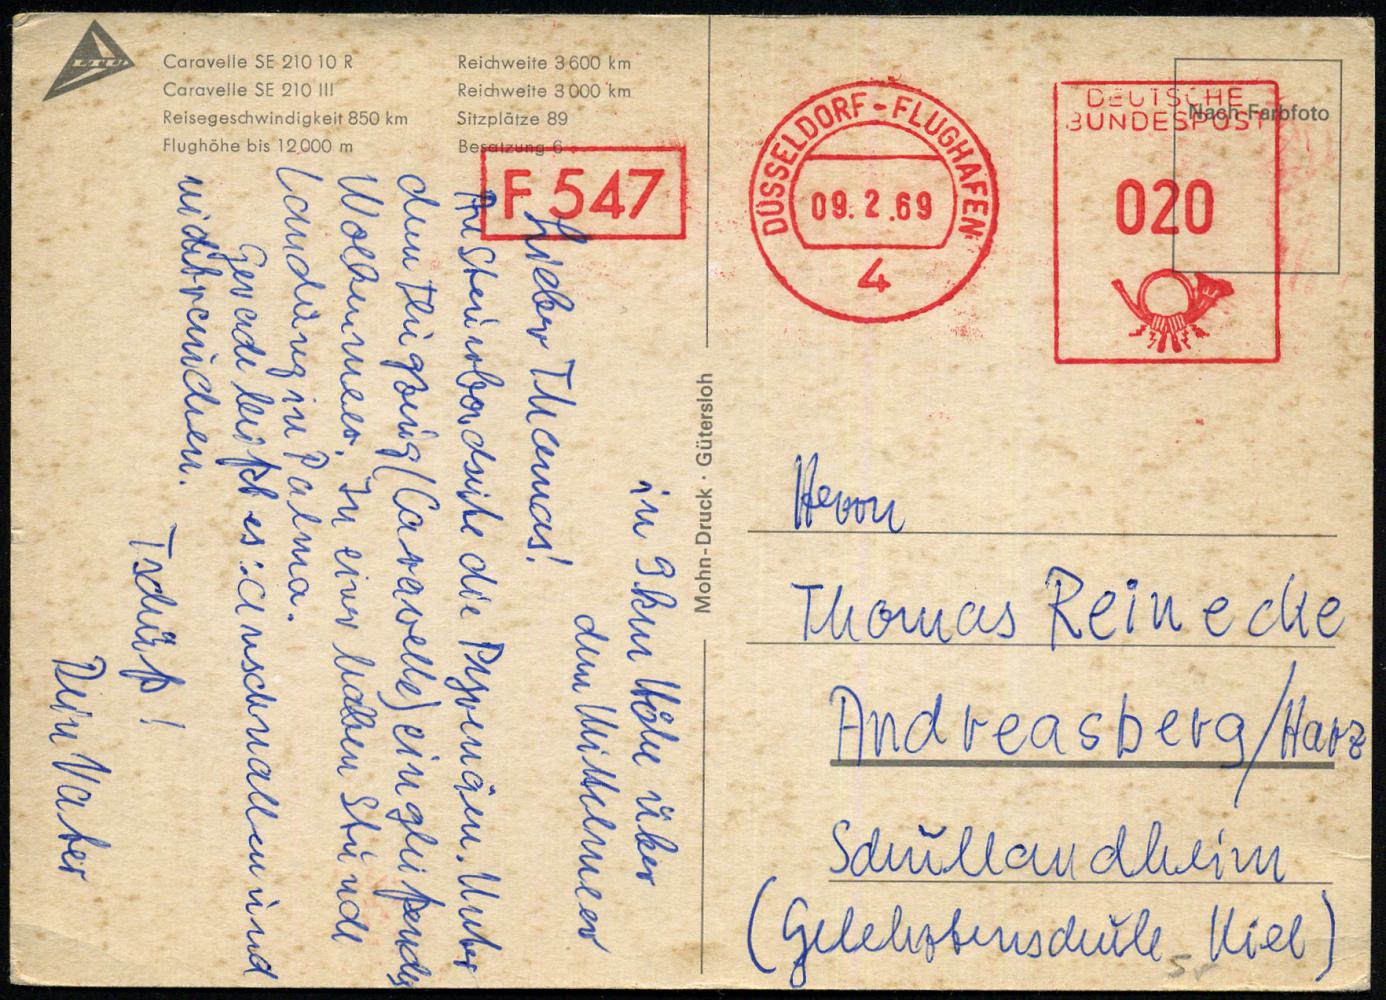 LTU
Caravelle SE 210 10 R
Caravelle SE 210 III
Reisegeschwindigkeit 850 km
Flughöhe bis 12 000 m
Reichweite 3 600 km
Reichweite 3 000 km
Sitzplätze 89
Besatzung 6
F 547
DÜSSELDORF-FLUGHAFEN
09.2.69
4
DEUTSCHE
BUNDESPOST
020
Nach Farbfoto
in 9 km Höhe über
dem Mittelmeer
Lieber Thomas!
An Steuerbordseite die Pyrenäen. Unter
dem Flugzeug (Caravelle) ein gleißendes
Wolkenmeer. In einer halben Stunde
Landung in Palma.
Gerade heißt es: anschnallen und
nicht rauchen.
Tschüß!
Dein Vater
Mohn-Druck · Gütersloh
Herrn
Thomas Reinecke
Andreasberg/Harz
Schullandheim
(Gelehrtenschule Kiel)